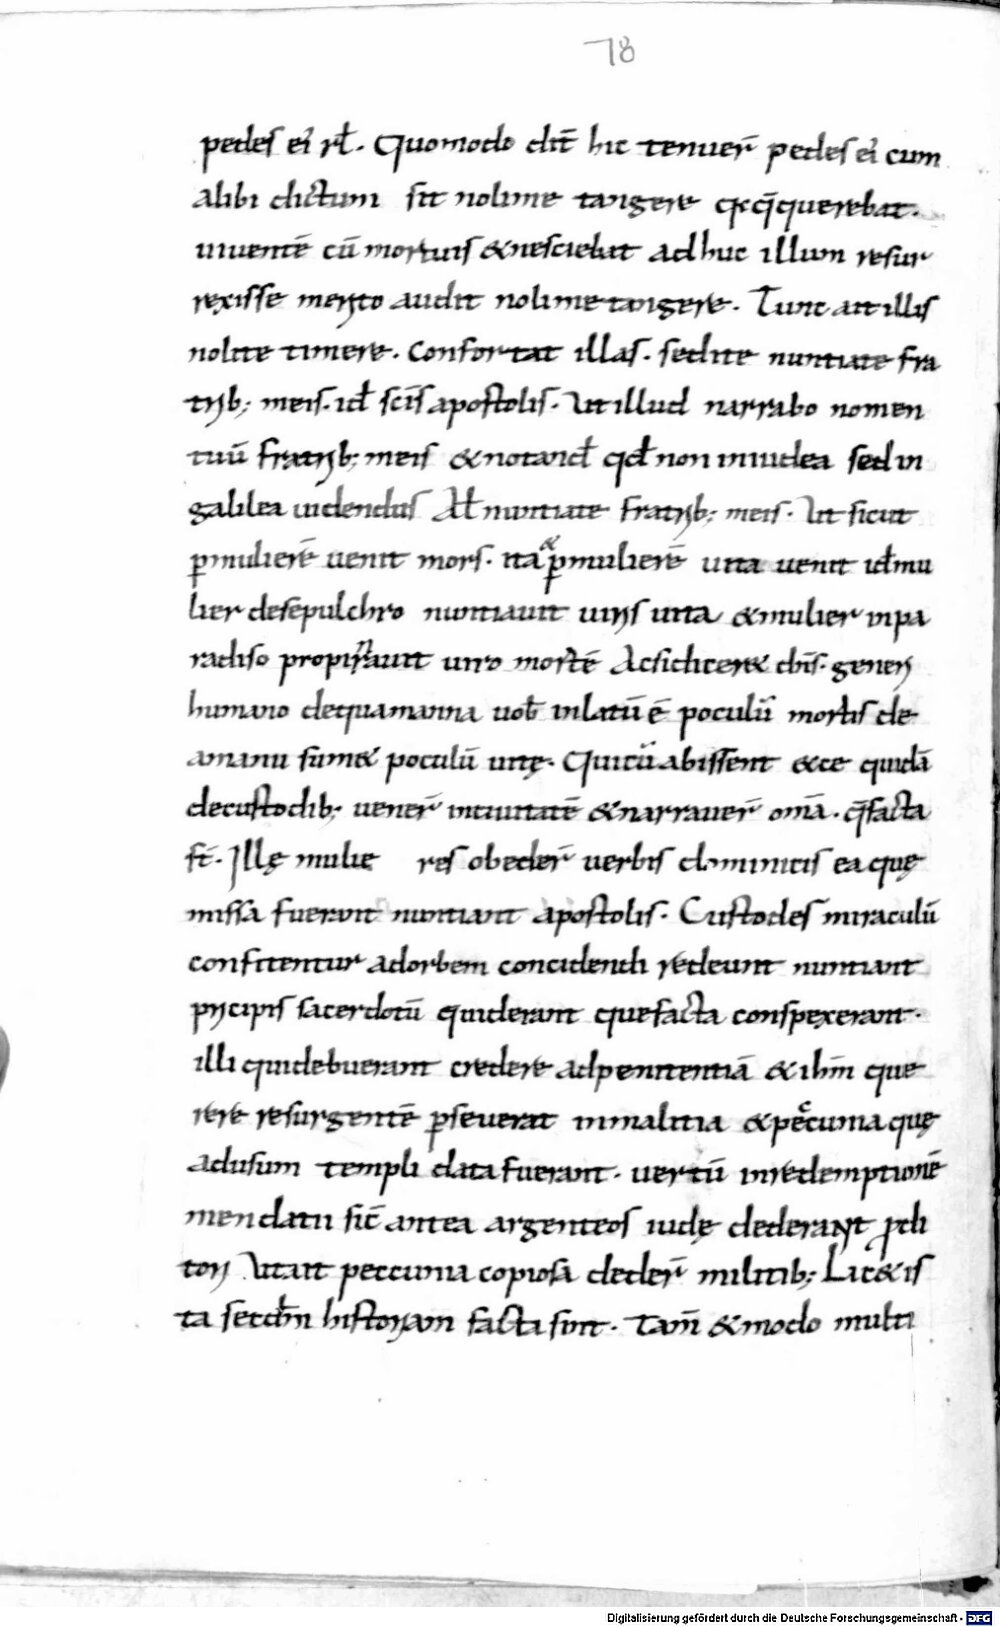 78
pedes ei᾽ rł. Quomodo dic̄t hic tenuer̄ pedes ei᾽ cum
alibi dictum sit nolime tangere q̨ꝛ q̄querebat.
uiuentē cū mortuis &nesciebat adhuc illum resur
rexisse merito audit nolimetangere. Tunc ait illis
nolite timere. Confortat illas. sed ite nuntiate fra
trib; meis. id̄ sc̄is apostolis. Ut illud narrabo nomen
tuū fratrib; meis &notand̄ qd̄ non iniudea sed in
galilea uidendus Al̄ nuntiate fratrib; meis. Ut sicut
ꝑmulierē uenit mors. ita & ꝑmulierē uita uenit id̄ mu
lier desepulchro nuntiauit uiris uita &mulier inpa
radiso propinauit uiro mortē Acsidicer& dn̄s. generi
humano dequamanna uob̄ inlatū ē poculū mortis de
amanu sum& poculū uitę. Quicū abissent ecce quidā
decustodib; uener̄ inciuitatē &narrauer̄ omīa. q̄facta
st̄. Illę mulie res obeder̄ uerbis dominicis ea quę
missa fuerant nuntiant apostolis. Custodes miraculū
confitentur adorbem concidendi redeunt nuntiant
pricipis sacerdotū quiderant quefacta conspexerant.
illi quidebuerant credere adpenitentiā &ihm̄ que
rere resurgentē ꝑseuerat inmalitia &peccunia quę
adusum templi data fuerant. uertū inredemptionē
mendatii sic̄ antea argenteos iudę dederant ꝓdi
tori Utait peccunia copiosa deder̄ militib; Lic& is
ta secd̄m historiam facta sint. Tam̄ &modo multi
Digitalisierung gefördert durch die Deutsche Forschungsgemeinschaft - DFG